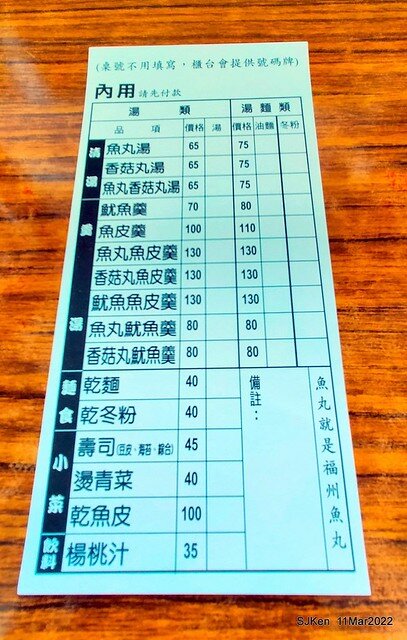 (桌號不用填寫，櫃台會提供號碼牌)
內用 請先付款
湯 類 湯 麵 類
品 項 價格 湯 價格 油麵 冬粉
清湯
魚丸湯 65 75
香菇丸湯 65 75
魚丸香菇丸湯 65 75
羹湯
魷魚羹 70 80
魚皮羹 100 110
魚丸魚皮羹 130 130
香菇丸魚皮羹 130 130
魷魚魚皮羹 130 130
魚丸魷魚羹 80 80
香菇丸魷魚羹 80 80
麵食
乾麵 40
乾冬粉 40
小菜
壽司(豆皮、海苔、綜合) 45
燙青菜 40
乾魚皮 100
飲料
楊桃汁 35
備註：
魚丸就是福州魚丸
SJKen 11Mar2022